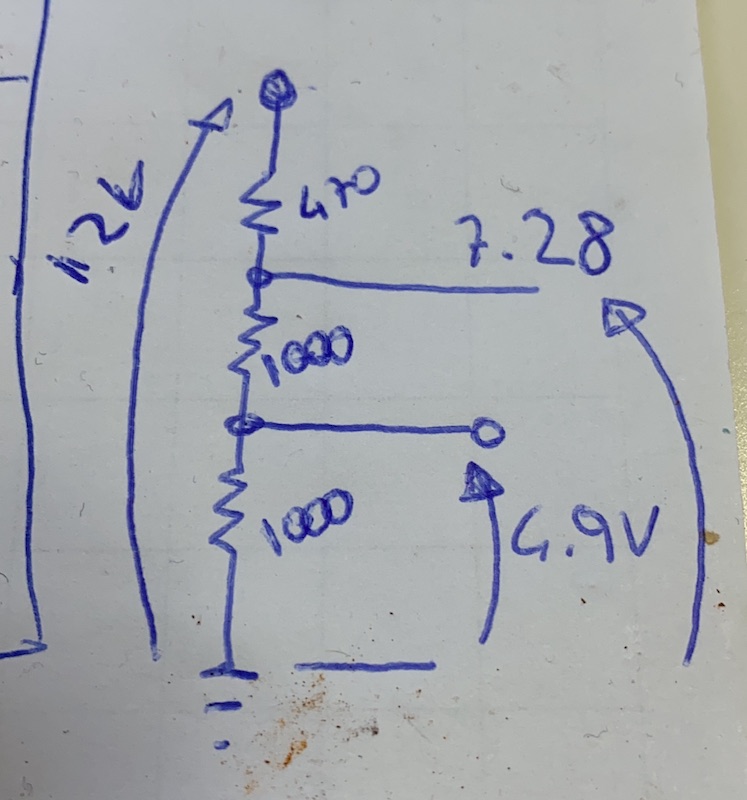 12V
470
7.28
1000
1000
4.9V